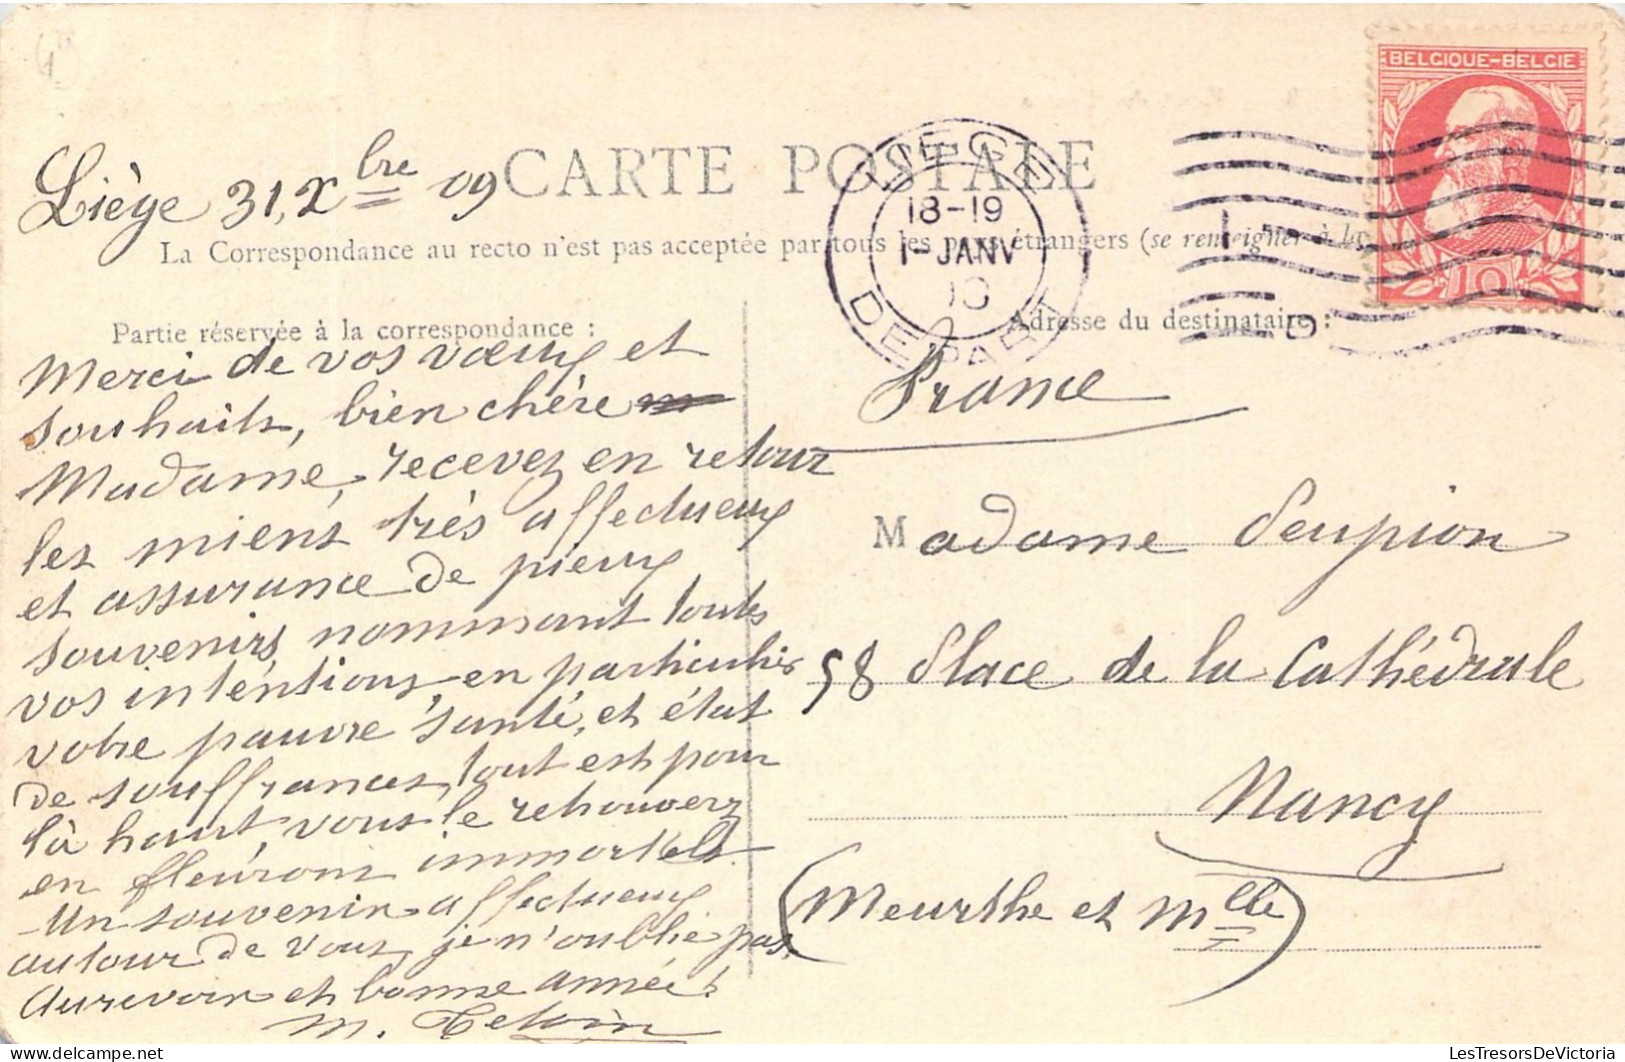 BELGIQUE-BELGIE
10
Liège 31, Xbre 09
CARTE POSTALE
LIEGE
18-19
1-JANV
10
DEPART
La Correspondance au recto n'est pas acceptée par tous les pays étrangers (se renseigner à la
Partie réservée à la correspondance :
Adresse du destinataire :
Merci de vos vœux et
souhaits, bien chère
Madame, recevez en retour
les miens très affectueux
et assurance de pieux
souvenirs nommant toutes
vos intentions, en particulier
votre pauvre santé, et état
de souffrances, tout est pour
là haut, vous le retrouverez
en fleurons immortels.
Un souvenir affectueux
autour de vous, je n'oublie pas.
Aurevoir et bonne année!
M.
France
Madame
58 Place de la Cathédrale
Nancy
(Meurthe et Mlle)
delcampe.net
LesTresorsDeVictoria